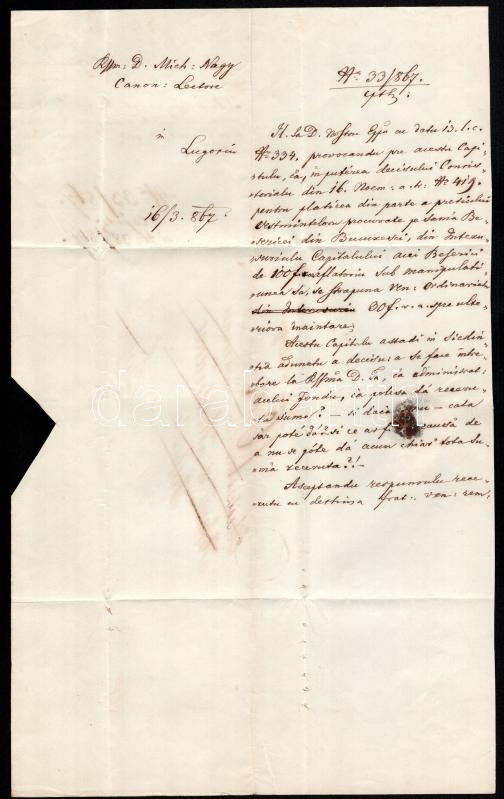 Rssm: D. Mich: Nagy
Canon: Lectore
in
Lugosiu
16/3. 867.
Nr. 33/867.
cptl:
Il. Sa D. Nostru Eppu cu datu 13. l. c.
Nr. 334, provocandu pre acestu Capi
tulu, ca, in puterea decisului Consis
torialu din 16. Noem: a. tr: Nr. 419.
pentru platirea din parte a pretiului
Vestmintelor procurate pe sama Be
sericei din Bucuresci, din
suriului Capitalului acei Beserici
de 100 f. aflatoriu sub manipulati
unea sa, se strapuna Ven: Ordinariat
60 f. v. a. spre ulte
riora inaintare;
Acestu Capitulu astadi in Siedin
tia adunatu a decisu: a se face intre
bare la Rssma D. Ta, ca administrat:
acelui fondu, ca potese dá receru
ta suma? — si daca nu — cata
sar poté dá? si ce ar fi causá de
a nu se pote dá acum chiar tota su
ma receruta?! —
Asceptandu respunsulu rece
rutu cu destinsa frat: ven: rem.
darabanth.com